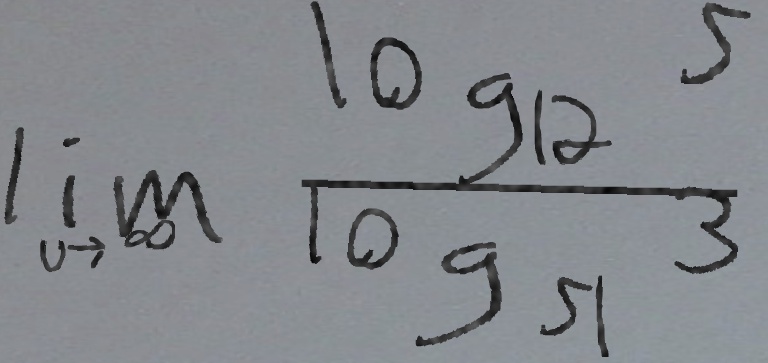 \lim_{v \to \infty} \frac{\log_{12} 5}{\log_{51} 3}